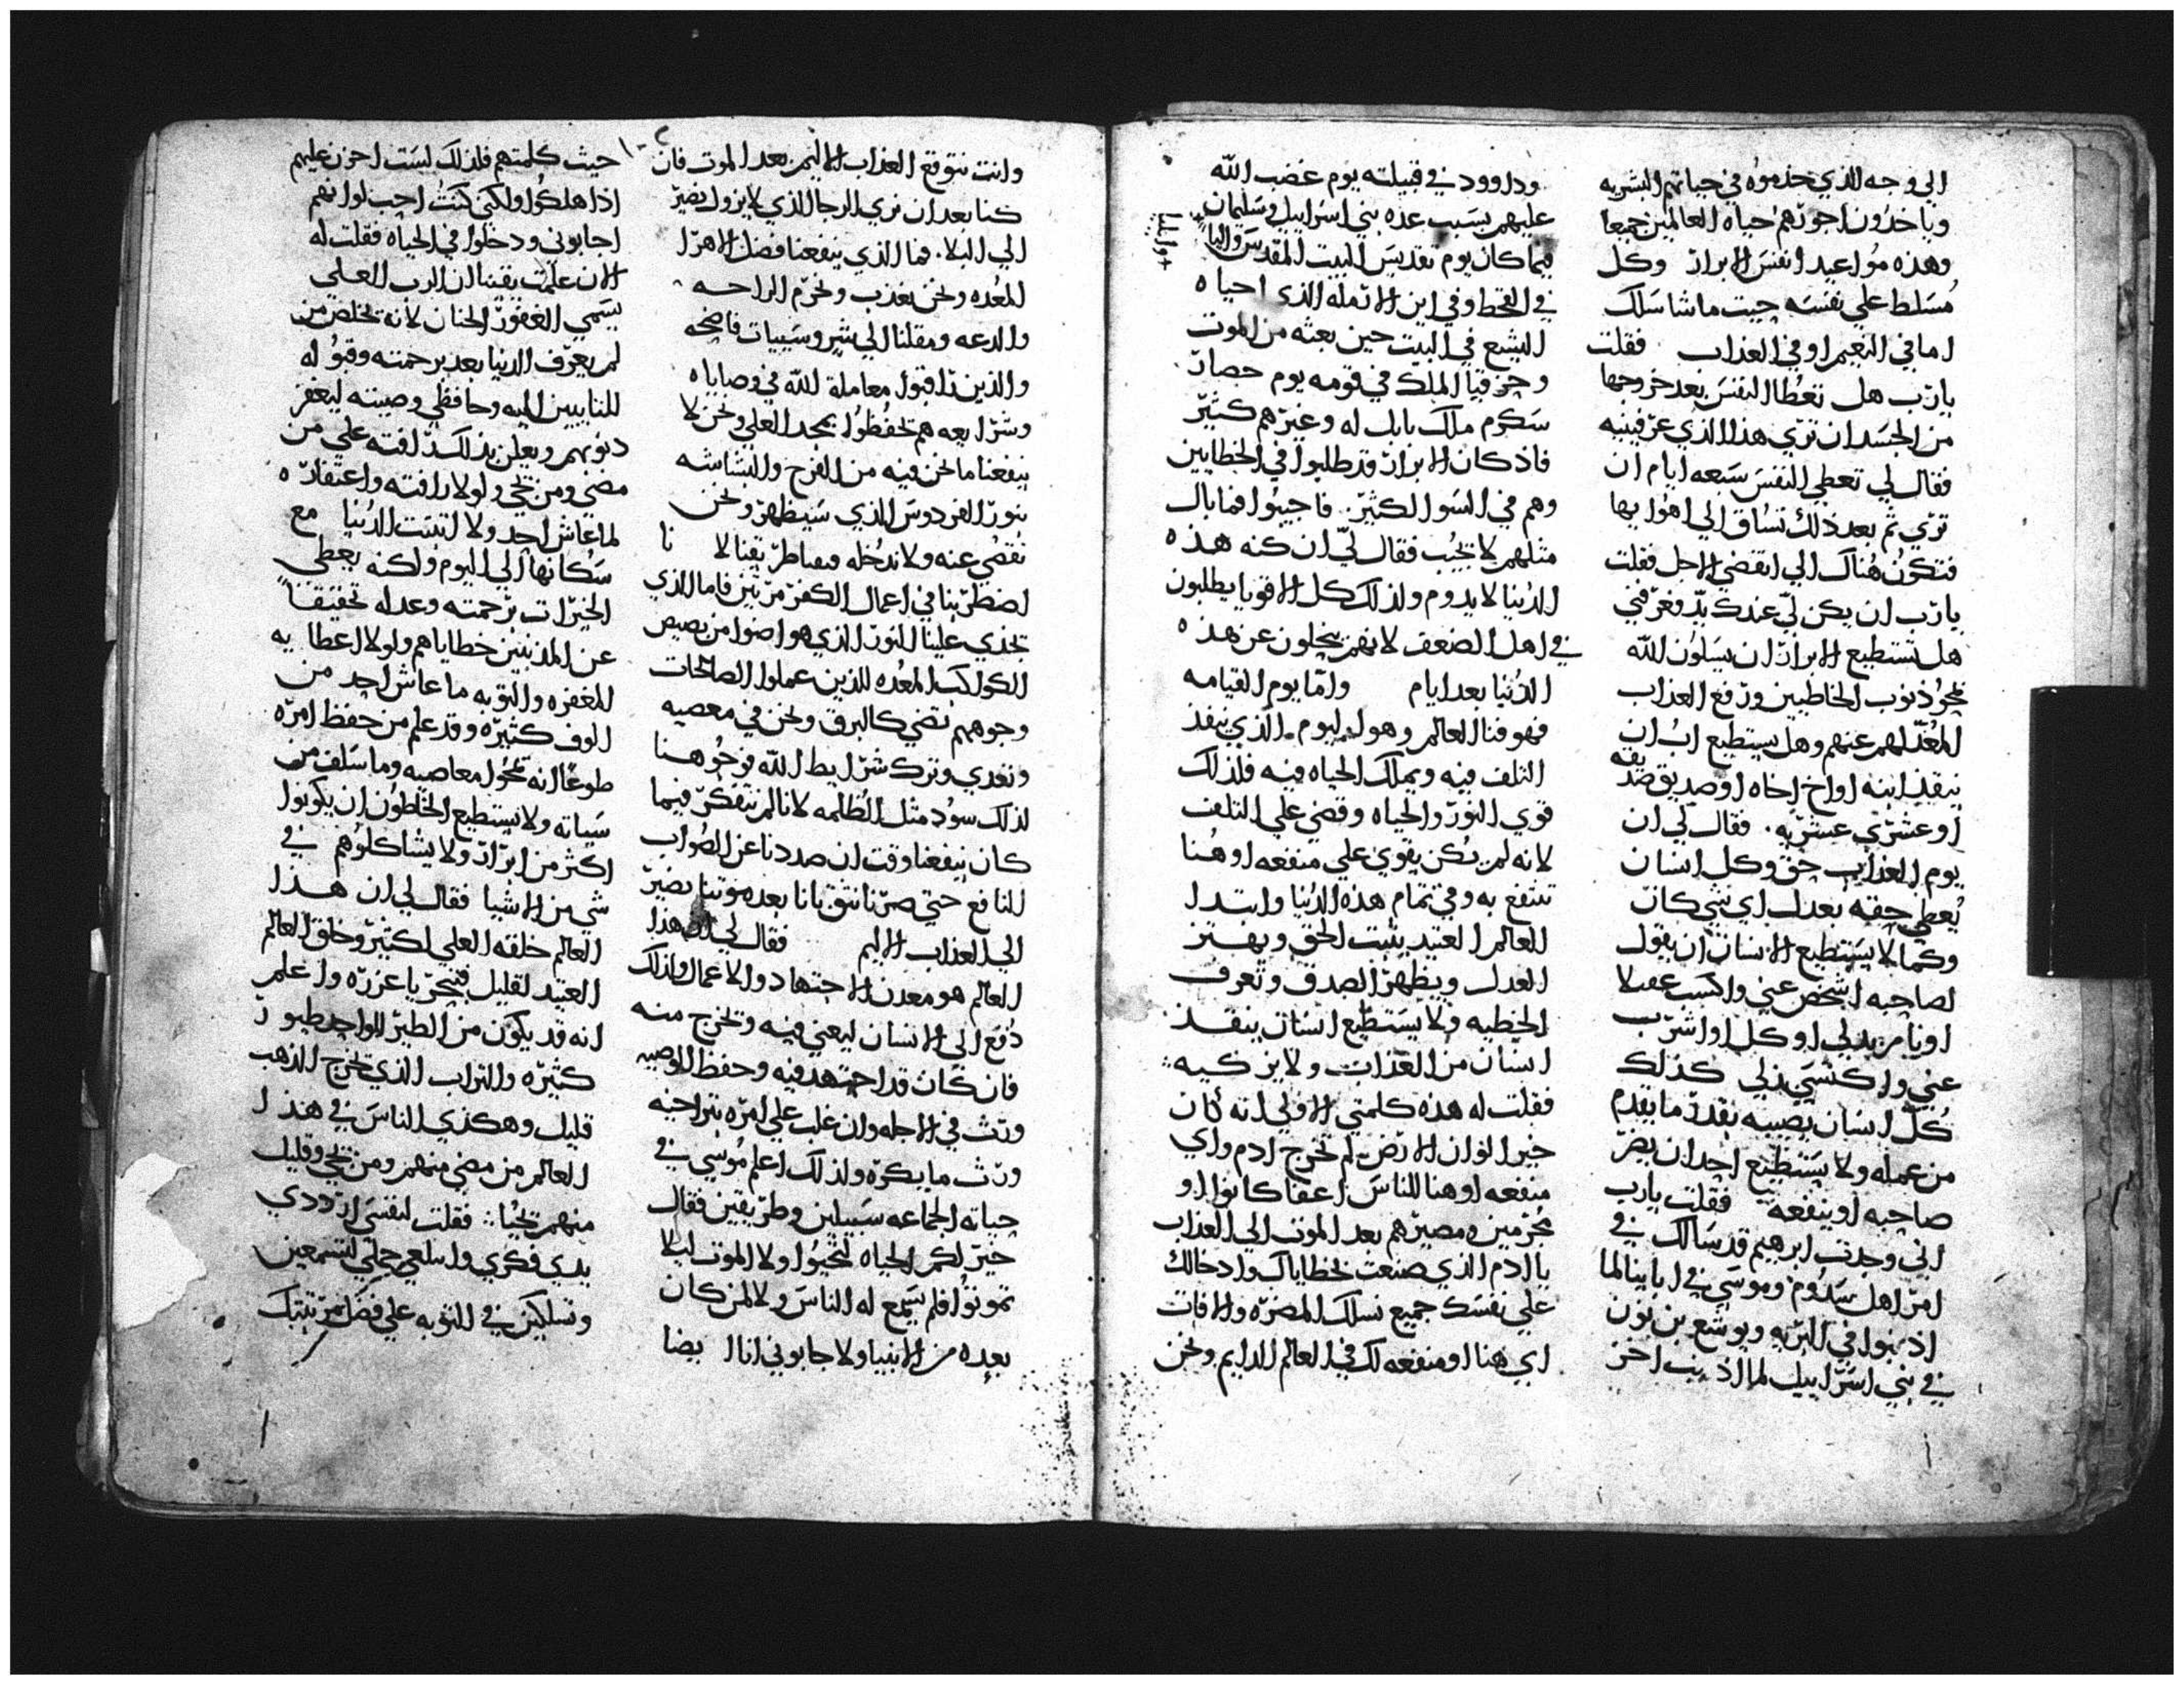 الي وجه الذي خدموه في حياتهم البشريه
وياخدون اجورهم حياه العالمين جميعا
وهذه مواعيد انفس الابرار وكل
مسلط علي نفسه حيت ما شا سلك
اما في النعيم او في العذاب فقلت
يارب هل تعطا النفس بعد خروجها
من الجسد ان تري هذا الذي عرفتنيه
فقال لي تعطي النفس سبعه ايام ان
تري ثم بعد ذلك تساق الي اهوايها
فتكون هناك الي انقضي الاجل فقلت
يارب ان يكن لي عندك يد فعرفني
هل تستطيع الابرار ان يسلون الله
محو ذنوب الخاطيين ورفع العذاب
المعد لهم عنهم وهل يستطيع اب ان
ينقذ ابنه او اخ اخاه او صديق صديقه
او عشري عشريه. فقال لي ان
يوم العذاب حق وكل انسان
يعطي حقه بعدل اي شي كان
وكما لا يستطيع الانسان ان يقول
لصاحبه اشخص عني واكسب عقلا
او نام بدلي او كل او اشرب
عني واكتسي بدلي كذلك
كل انسان يصيبه بقدر ما يقدم
من عمله ولا يستطيع احد ان يضر
صاحبه او ينفعه فقلت يارب
اني وجدت ابرهيم قد سالك في
امر اهل سدوم وموسي في ابايينا لما
اذنبوا في البريه ويوشع بن نون
في بني اسراييل لما اذنب اخر
وداوود في قبيلته يوم غضب الله
عليهم بسبب عده بني اسراييل وسليمان
فيما كان يوم تقديس البيت المقدس واليا
+ وايليا
في القحط وفي ابن الارمله الذي احياه
اليشع في البيت حين بعثه من الموت
وحزقيا الملك في قومه يوم حصار
سكرم ملك بابل له وغيرهم كثير
فاذ كان الابرار قد طلبوا في الخطايين
وهم في السو الكثير. فاجيبوا فما بال
مثلهم لا يجيب فقال لي ان كنه هذه
الدنيا لا يدوم ولذلك كل الاقويا يطلبون
في اهل الضعف لانهم يتخلون عن هذه
الدنيا بعد ايام واما يوم القيامه
فهو فنا العالم وهول اليوم الذي ينفذ
التلف فيه ويملك الحياه فيه فلذلك
قوي النور والحياه وقضي علي التلف
لانه لم يكن يقوي علي منفعه او هنا
تنتفع به وفي تمام هذه الدنيا وابتدا
العالم العتيد يثبت الحق ويهتز
العدل ويظهر الصدق وتعرف
الخطيه ولا يستطيع انسان ينقذ
انسان من العذاب ولا يزكيه
فقلت له هذه كلمتي الاولي انه كان
خيرا لو ان الارض لم تخرج ادم واي
منفعه او هنا للناس اعفا كانوا او
مجرمين ومصيرهم بعد الموت الي العذاب
يا ادم الذي صنعت بخطاياك وادخالك
علي نفسك جميع نسلك المضره والافات
اي هنا او منفعه لك في العالم الدايم ونحن
وانت نتوقع العذاب الاليم بعد الموت فان
كنا بعد ان نري الرجا الذي لا يزول نصير
الي البلا. فما الذي ينفعنا فضل الاهرا
المعده ونحن نعذب ونحرم الراحه
والدعه ومقلنا الي شر وسييات فاضحه
والذين ذاقوا معامله الله في وصاياه
وشرايعه هم يحفظوا بمجد العلي ونحن لا
ينفعنا ما نحن فيه من الفرح والبشاشه
بنور الفردوس الذي سيظهر ونحن
نقصي عنه ولا ندخله يقينا لانا
اضطربنا في اعمال الكفر مرتين فاما الذي
يجدي علينا النور الذي هو اضوا من بصيص
الكواكب المعده للذين عملوا الصالحات
وجوههم تضي كالبرق ونحن في معصيه
وتعدي وترك شرايط الله فوجوهنا
لذلك سود مثل الظلمه لانا لم نتفكر فيما
كان ينفعنا وقت ان صددنا عن الصواب
النافع حتي صرنا نتق بانا بعد موتنا نصير
الي العذاب الاليم فقال لي ان هذا
العالم هو معدن الاجتهاد والاعمال ولذلك
دفع الي الانسان ليعني فيه وتخرج منه
فان كان قد اجتهد فيه وحفظ الوصيه
ورث في الاجله وان غلب علي امره بتراخيه
ورث ما يكره ولذلك اعلم موسي في
حياته الجماعه سبيلين وطريقين فقال
خير لكم الحياه لتحيوا ولا الموت ليلا
تموتوا فلم يسمع له الناس ولا لمن كان
بعده من الانبيا ولا جابوني انا ايضا
حيث كلمتهم فلذلك ليست احزن عليهم
اذا هلكوا ولكني كنت احب لو انهم
اجابوني ودخلوا في الحياه فقلت له
الان علمت يقينا ان الرب العلي
يسمي الغفور الحنان لانه يخلص من
لم يعرف الدنيا بعد برحمته وقبوله
للتايبين اليه وحافظي وصيته ليغفر
ذنوبهم ويعلن بذلك رافته علي من
مضي ومن يجي ولولا رافته واغتفاره
لما عاش احد ولا لتبتت الدنيا مع
سكانها الي اليوم ولكنه يعطي
الخيرات برحمته وعدله تخفيفا
عن المذنبين خطاياهم ولولا اعطايه
المغفره والتوبه ما عاش احد من
الوف كثيره وقد علم من حفظ امره
طوعا انه يمحو معاصيه وما سلف من
سياته ولا يستطيع الخاطون ان يكونوا
اكثر من ابرار ولا يشاكلوهم في
شي من الاشيا فقال لي ان هذا
العالم خلقه العلي لكثير وخلق العالم
العتيد لقليل فتبحر يا عزره واعلم
انه قد يكون من الطير الواحد طيور
كثيره والتراب الذي يخرج الذهب
قليل وهكذي الناس في هذا
العالم من مضي منهم ومن يجي وقليل
منهم يحيا فقلت لنفسي ازددي
يدي فكري وابلعي حملي لتسمعين
وتسلكين في التوبه علي فضل مرتبتك